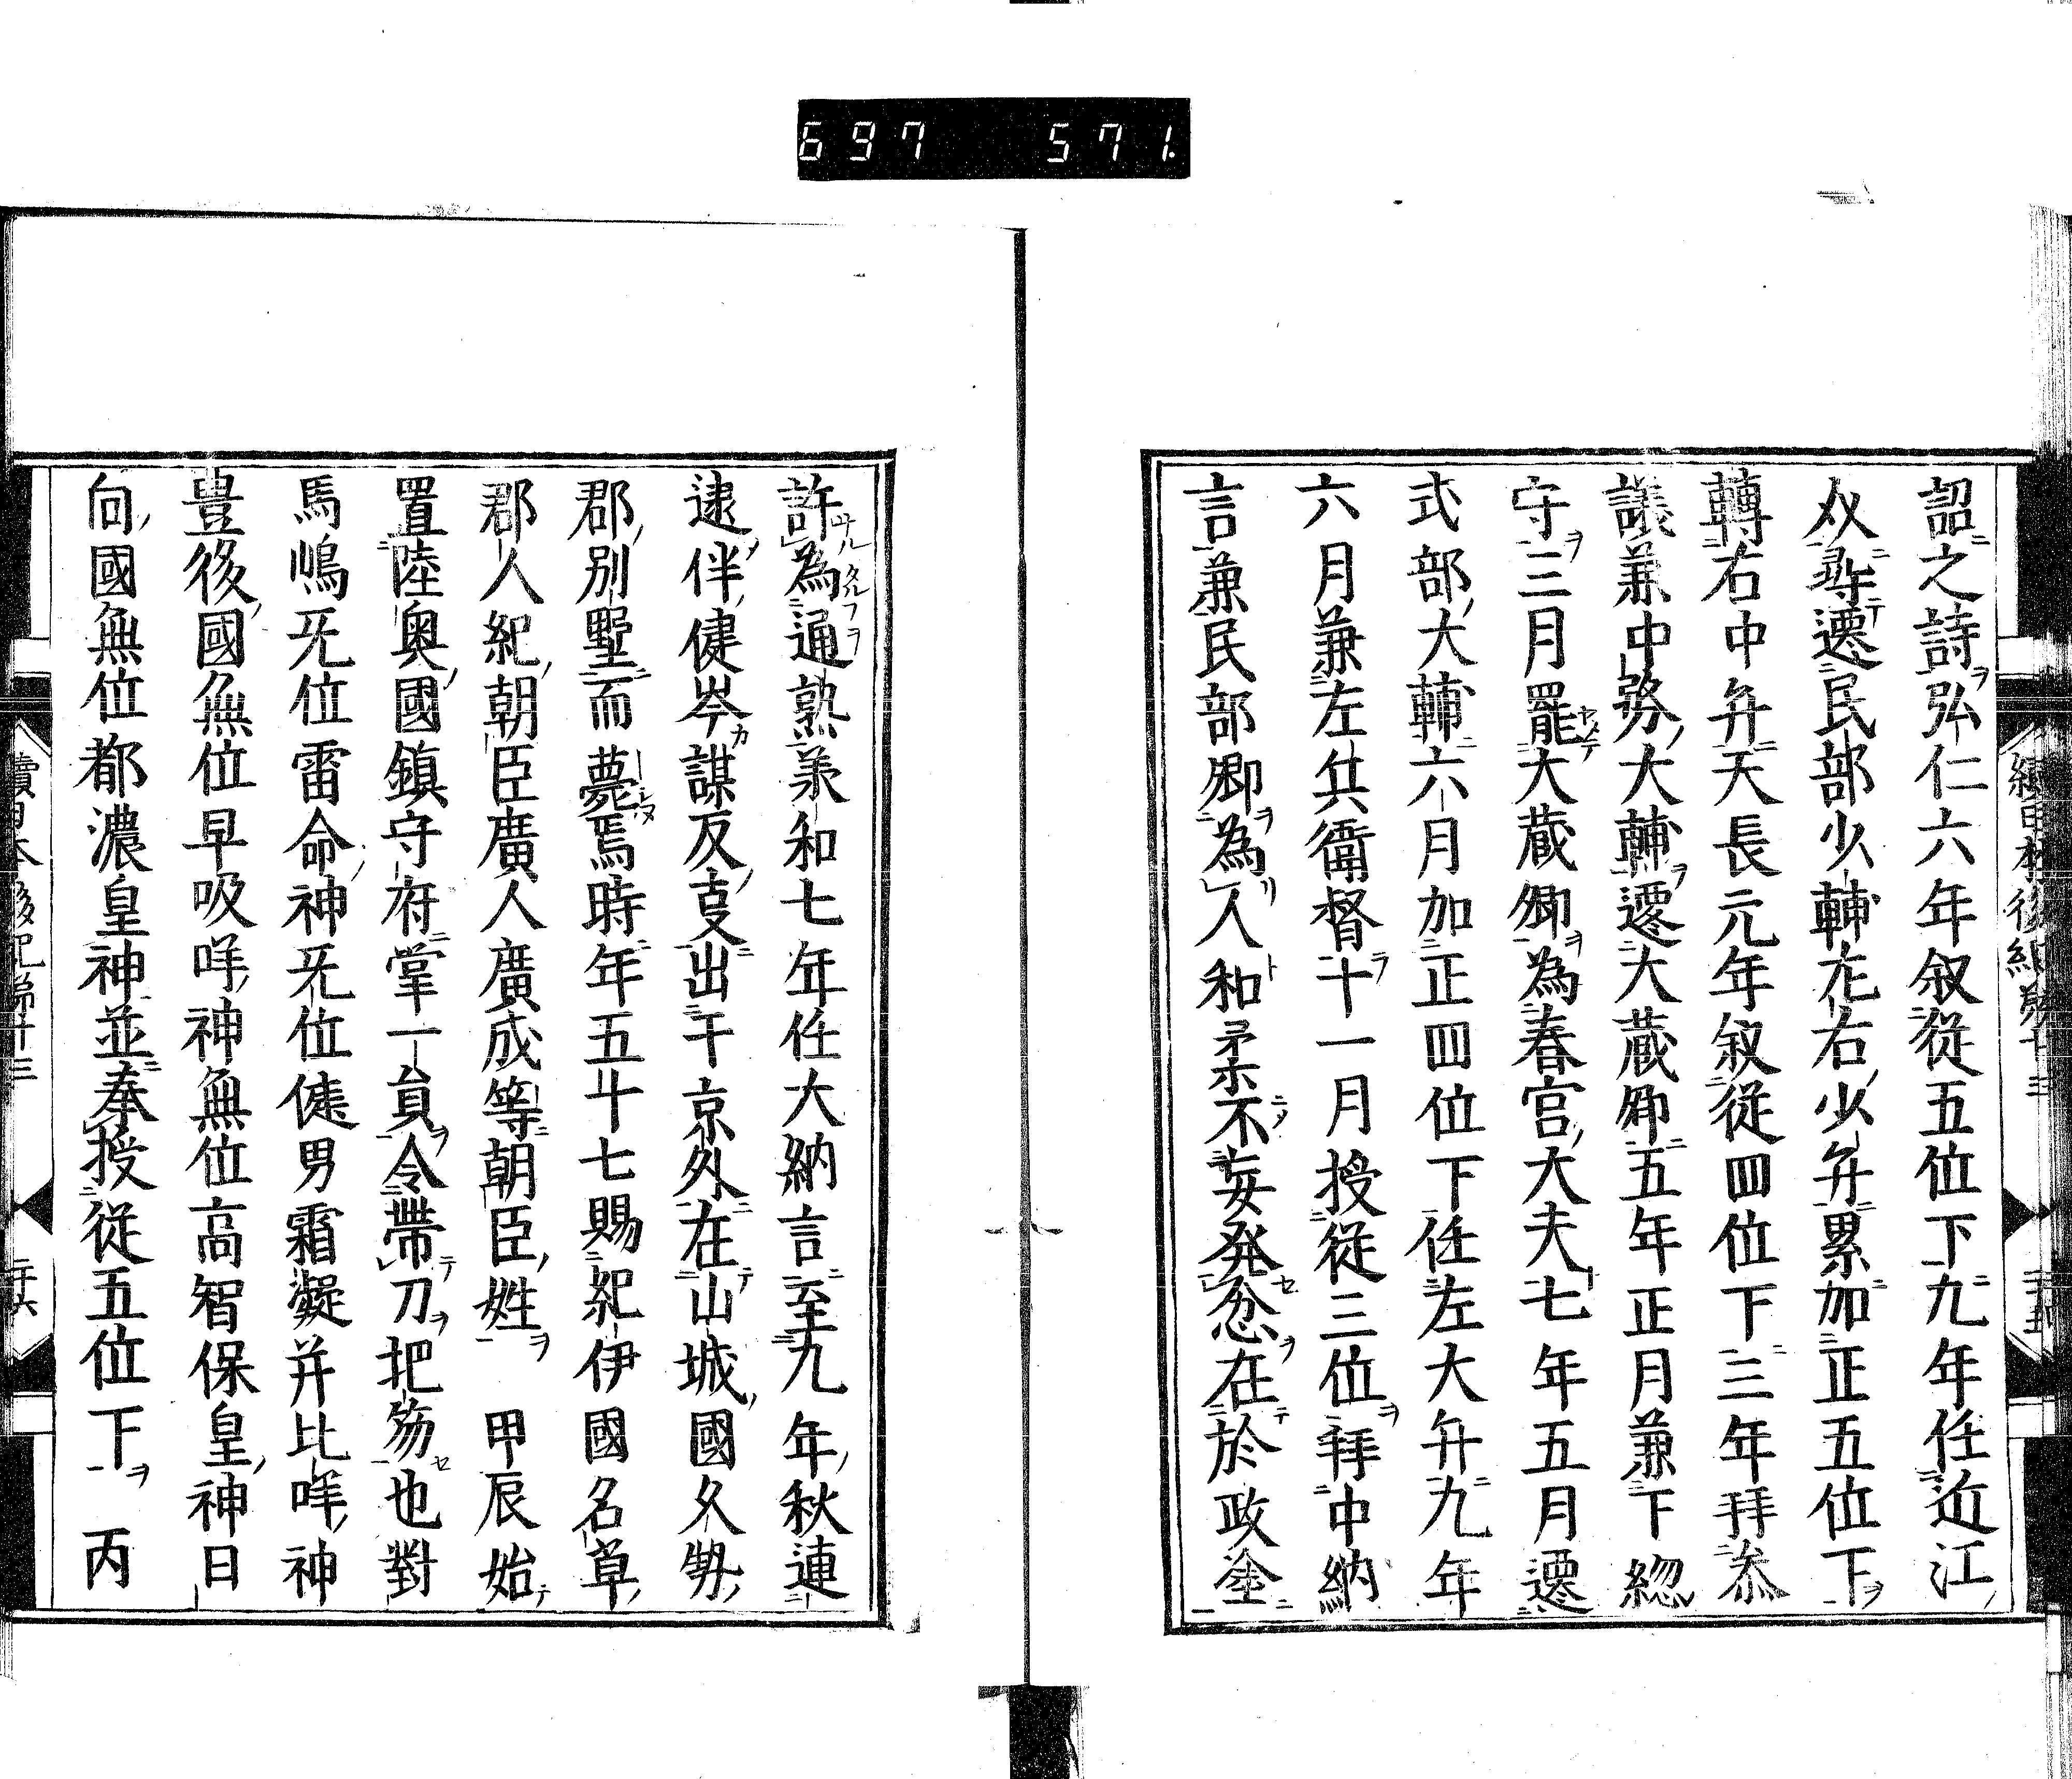 697 571
詔之詩弘仁六年叙從五位下九年任近江
尋遷民部少輔左右少弁累加正五位下
轉右中弁天長元年叙從四位下三年拜叅
議兼中務大輔遷大蔵卿五年正月兼下総
守三月罷大蔵卿為春宮大夫七年五月遷
式部大輔六月加正四位下任左大弁九年
六月兼左兵衛督十一月授從三位拜中納
言兼民部卿為人和柔不妄発忿在於政塗
許為通熟羕和七年任大納言至九年秋連
逮伴健岑謀反出于京外在山城國久勢
郡別墅而薨焉時年五十七賜紀伊國名草
郡人紀朝臣廣人廣成等朝臣姓 甲辰始
置陸奥國鎮守府掌一員令帶刀把笏也對
馬嶋无位雷命神无位健男霜凝并比咩神
豊後國無位早吸咩神無位高智保皇神日
向國無位都濃皇神並奉授從五位下 丙
續日本後紀第十三 二十六